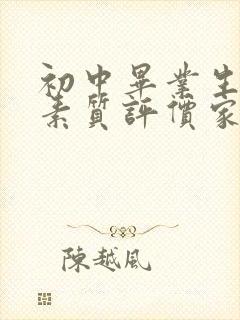 初中畢業生
素質評價家
陳越風